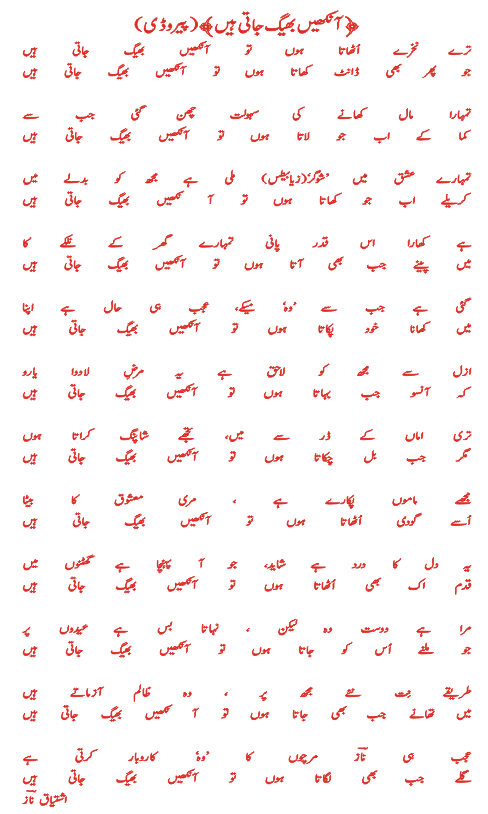 ﴿آنکھیں بھیگ جاتی ہیں﴾(پیروڈی)
ترے نخرے اُٹھاتا ہوں تو آنکھیں بھیگ جاتی ہیں
جو پھر بھی ڈانٹ کھاتا ہوں تو آنکھیں بھیگ جاتی ہیں
تمہارا مال کھانے کی سہولت چھن گئی جب سے
کما کے اب جو لاتا ہوں تو آنکھیں بھیگ جاتی ہیں
تمہارے عشق میں 'شوگر'(زیابیٹس) ملی ہے مجھ کو بدلے میں
کریلے اب جو کھاتا ہوں تو آ نکھیں بھیگ جاتی ہیں
ہے کھارا اس قدر پانی تمہارے گھر کے نلکے کا
میں پینے جب بھی آتا ہوں تو آنکھیں بھیگ جاتی ہیں
گئی ہے جب سے 'وہ' میکے، عجب ہی حال ہے اپنا
میں کھانا خود پکاتا ہوں تو آنکھیں بھیگ جاتی ہیں
ازل سے مجھ کو لاحق ہے یہ مرضِ لادوا یارو
کہ آنسو جب بہاتا ہوں تو آنکھیں بھیگ جاتی ہیں
تری اماں کے ڈر سے میں، تجھے شاپنگ کراتا ہوں
مگر جب بل چکاتا ہوں تو آنکھیں بھیگ جاتی ہیں
مجھے ماموں پکارے ہے ، مری معشوق کا بیٹا
اُسے گودی اُٹھاتا ہوں تو آنکھیں بھیگ جاتی ہیں
یہ دل کا درد ہے شاید، جو آ پہنچا ہے گھٹنوں میں
قدم اک بھی اُٹھاتا ہوں تو آنکھیں بھیگ جاتی ہیں
مرا ہے دوست وہ لیکن ، نہاتا بس ہے عیدوں پر
جو ملنے اُس کو جاتا ہوں تو آنکھیں بھیگ جاتی ہیں
طریقے نِت نئے مجھ پر ، وہ ظالم آزماتے ہیں
میں تھانے جب بھی جاتا ہوں تو آ نکھیں بھیگ جاتی ہیں
عجب ہی نازؔ مرچوں کا 'وہ' کاروبار کرتی ہے
گلے جب بھی لگاتا ہوں تو آنکھیں بھیگ جاتی ہیں
اشتیاق نازؔ